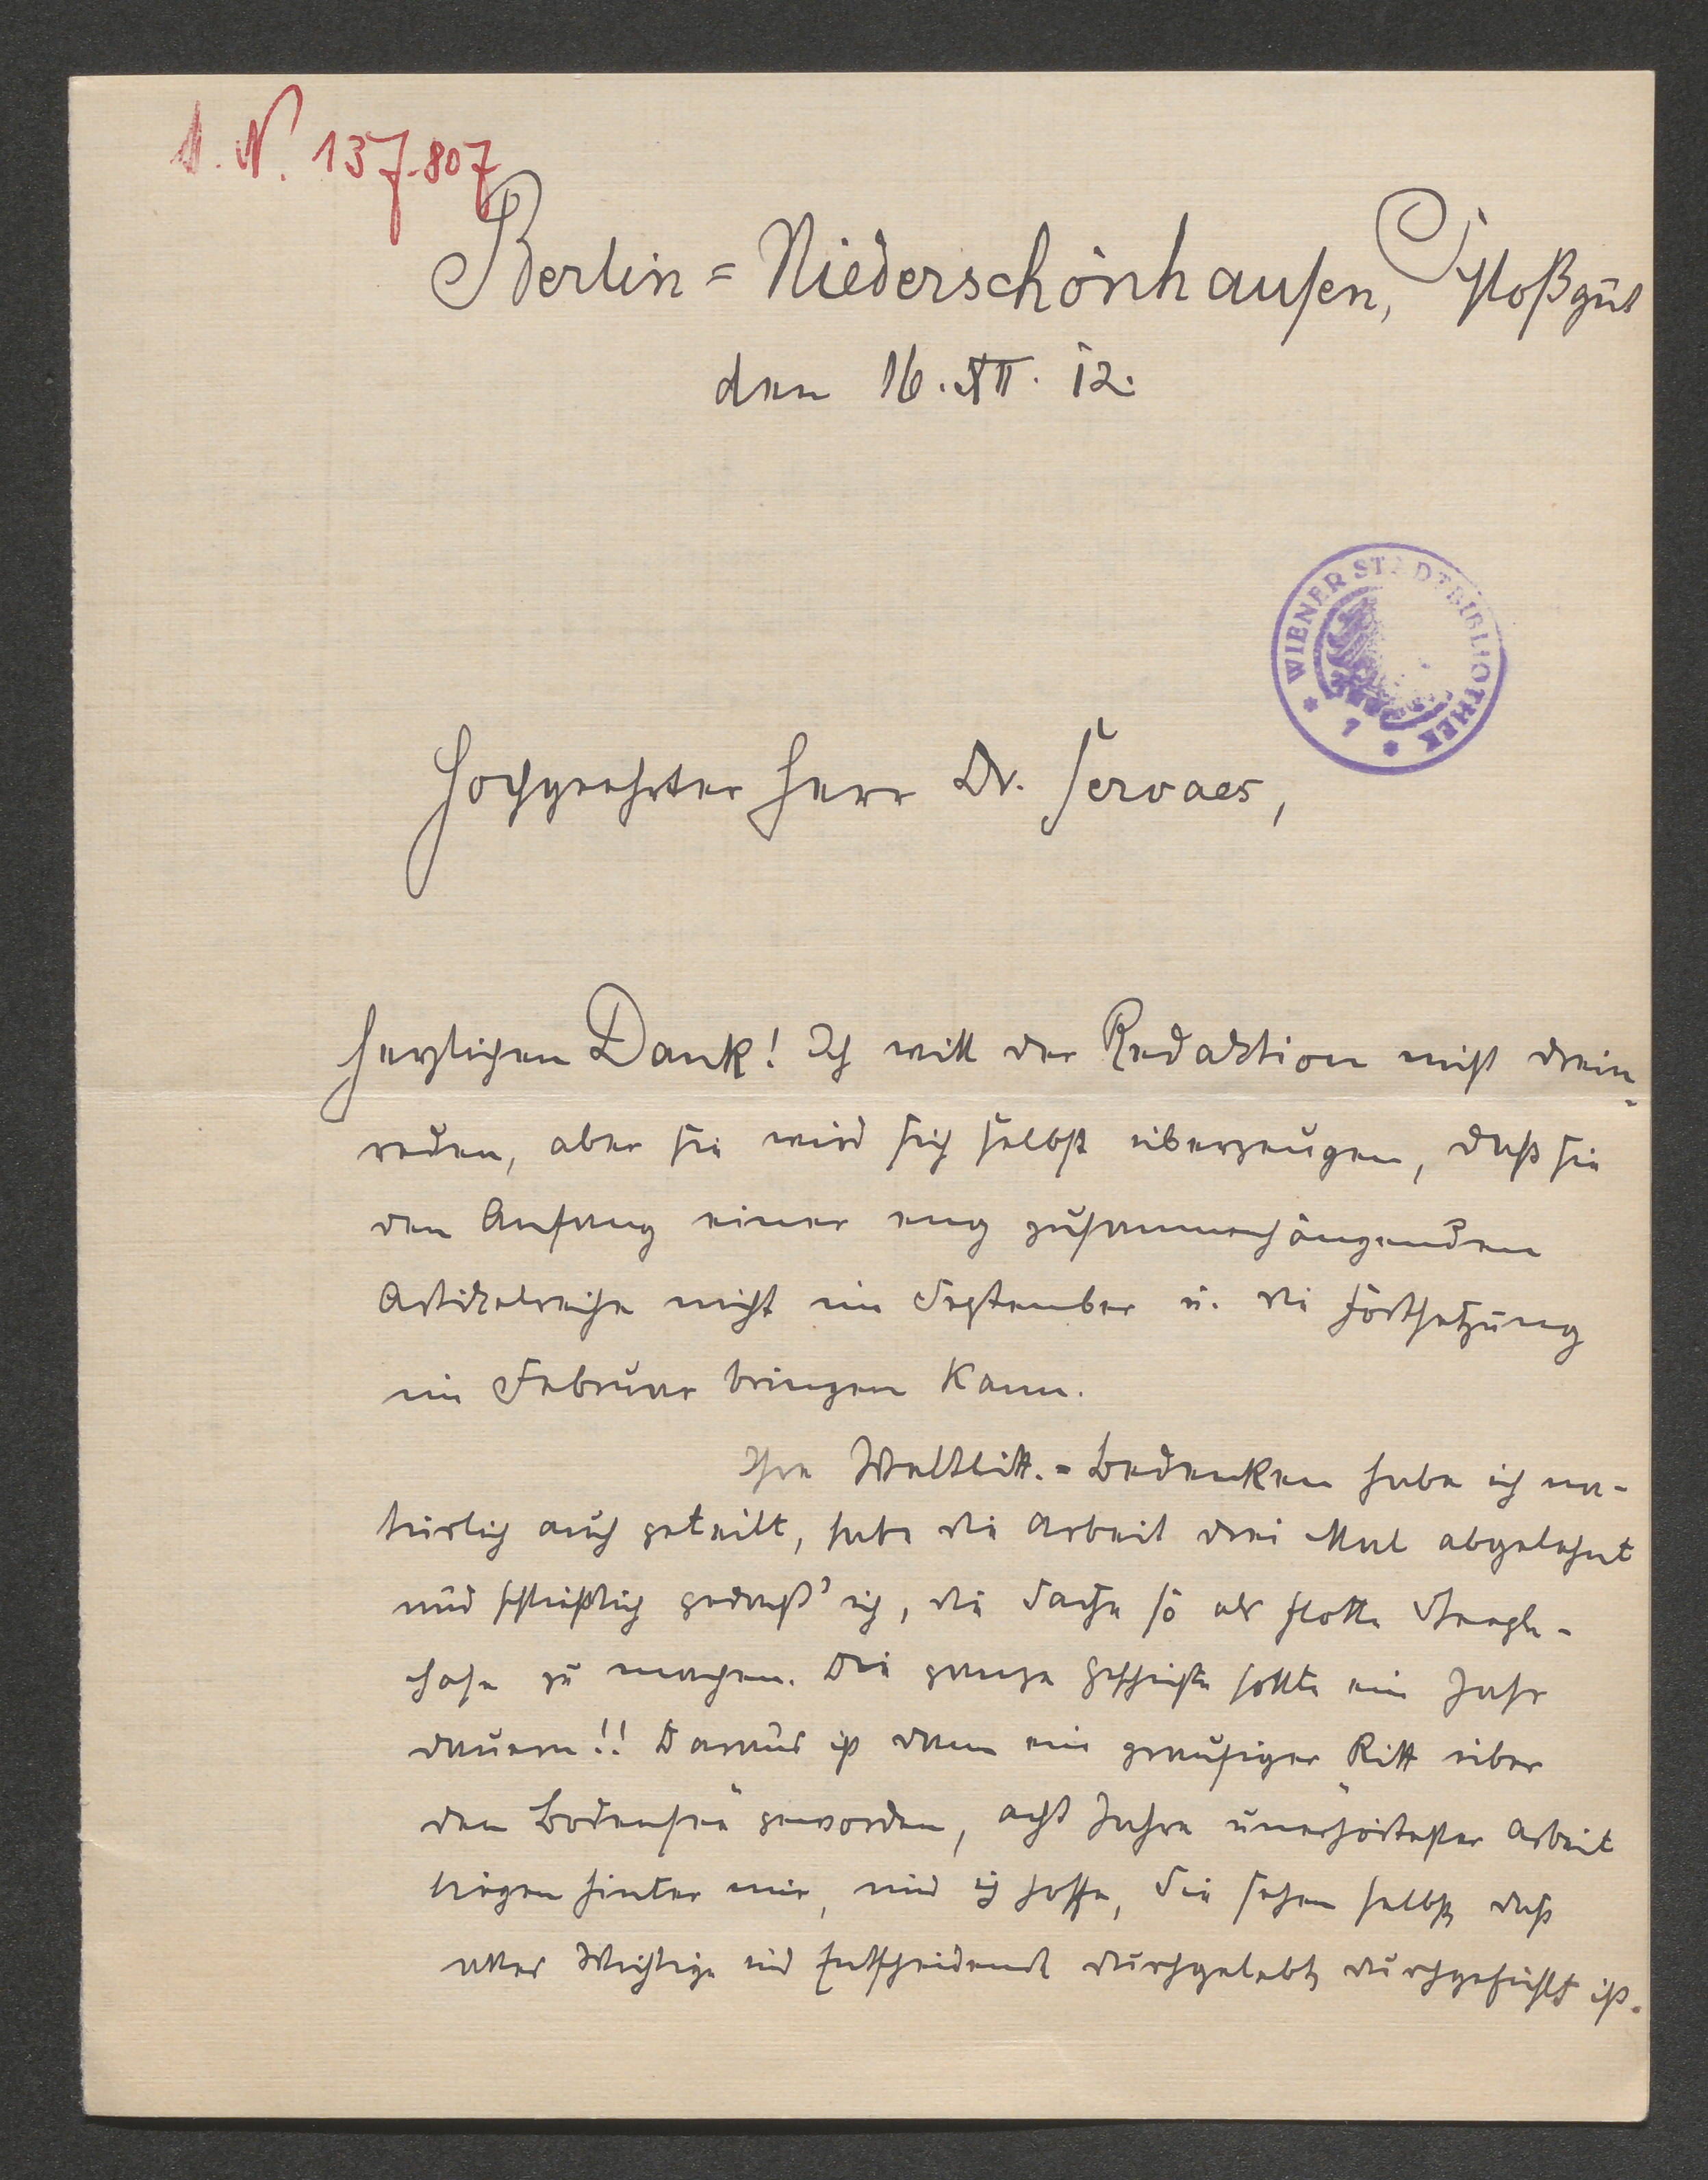 I. N. 137.807
Berlin=Niederschönhausen, Schloßgut
den 16. XII. 12.
WIENER STADTBIBLIOTHEK
Hochgeehrter Herr Dr. Servaes,
herzlichen Dank! Ich will der Redaktion nicht drein-
reden, aber sie wird sich selbst überzeugen, daß sie
den Anfang einer eng zusammenhängenden
Artikelreihe nicht im September u. die Fortsetzung
im Februar bringen kann.
Ihre Weltlitt.=Bedenken habe ich na-
türlich auch geteilt, habe die Arbeit drei Mal abgelehnt
und schließlich gedacht' ich, die Sache so als flotte
zu machen. Die ganze Geschichte sollte ein Jahr
dauern!! Daraus ist dann ein grausiger "Ritt über
den Bodensee" geworden, acht Jahre unerhörtester Arbeit
liegen hinter mir, und ich hoffe, Sie sehen selbst, daß
alles Wichtige und Entscheidende durchgelebt, durchgefühlt ist.